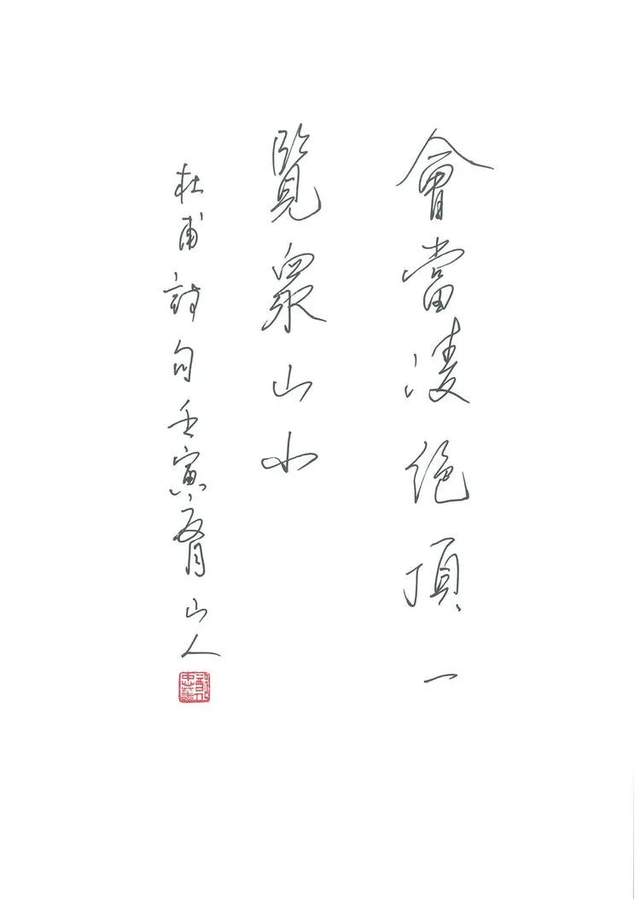 會當凌絕頂一
覽衆山小
杜甫詩句壬寅山人